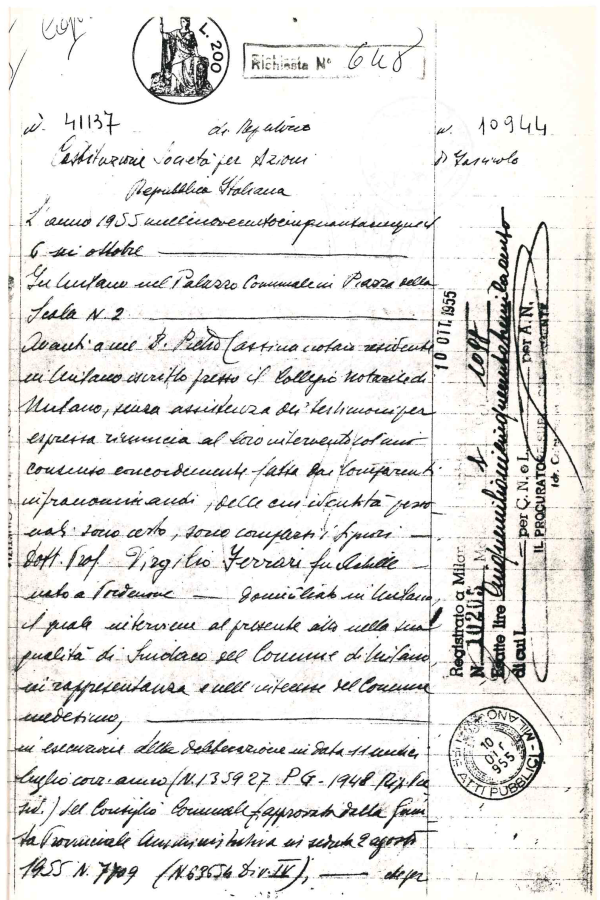 Copia
L. 200
Richiesta N° 648
N. 41137 di Repertorio N. 10944
Costituzione Società per Azioni di Fascicolo
Repubblica Italiana
L'anno 1955 millenovecentocinquantacinque il
6 sei ottobre
In Milano nel Palazzo Comunale in Piazza della
Scala N. 2
Avanti a me D. Pietro Cassina notaio residente
in Milano iscritto presso il Collegio Notarile di
Milano, senza assistenza dei testimoni per
espressa rinuncia al loro intervento col mio
consenso concordemente fatta dai comparenti
infranominandi, delle cui identità perso
nali sono certo, sono comparsi i Signori
Dott. Prof. Virgilio Ferrari fu Achille
nato a Pordenone domiciliato in Milano,
il quale interviene al presente atto nella sua
qualità di Sindaco del Comune di Milano,
in rappresentanza e nell'interesse del Comune
medesimo,
in esecuzione della deliberazione in data 11 undici
luglio corr. anno (N. 135927 P.G. - 1948 Rip.
) del Consiglio Comunale, approvata dalla Giun
ta Provinciale Amministrativa in seduta 2 agosto
1955 N. 7709 (N. 63654 Div. IV),
10 OTT. 1955
Registrato a Milano
N. 10205
Esatte lire cinquemilionicinquecento
di cui L. per C. N. e L. per A. N.
IL PROCURATORE
10 OTT 955
ATTI PUBBLICI - MILANO